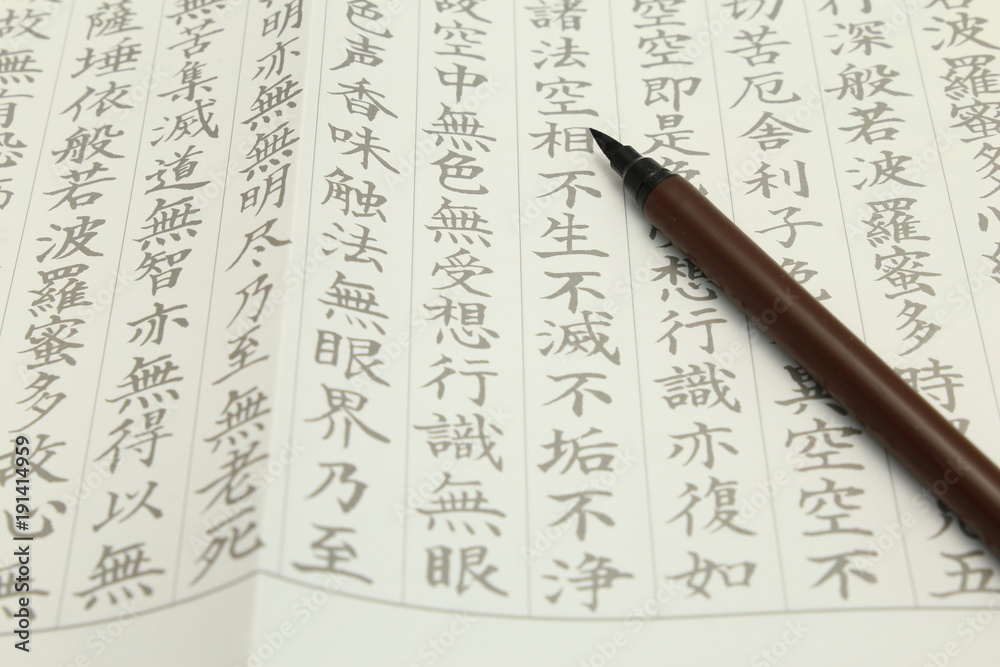 波羅蜜多心
行深般若波羅蜜多時五
切苦厄舍利子色異空空不
空空即是色想行識亦復如
諸法空相不生不滅不垢不浄
故空中無色無受想行識無眼
色声香味触法無眼界乃至
明亦無無明尽乃至無老死
無苦集滅道無智亦無得以無
薩埵依般若波羅蜜多故心無
故無有恐